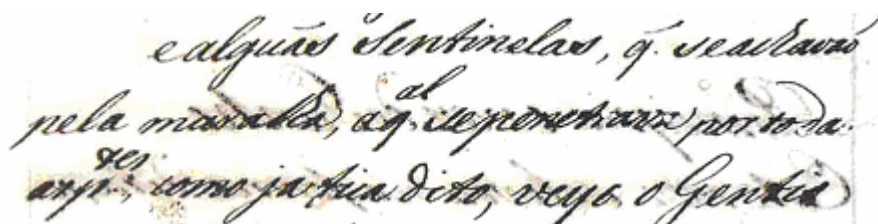 e alguãs Sentinelas, q̃. se achavaõ
pela muralha, aq.al se penetrava por toda-
as p.tes, como ja fica dito, veyo o Gentio